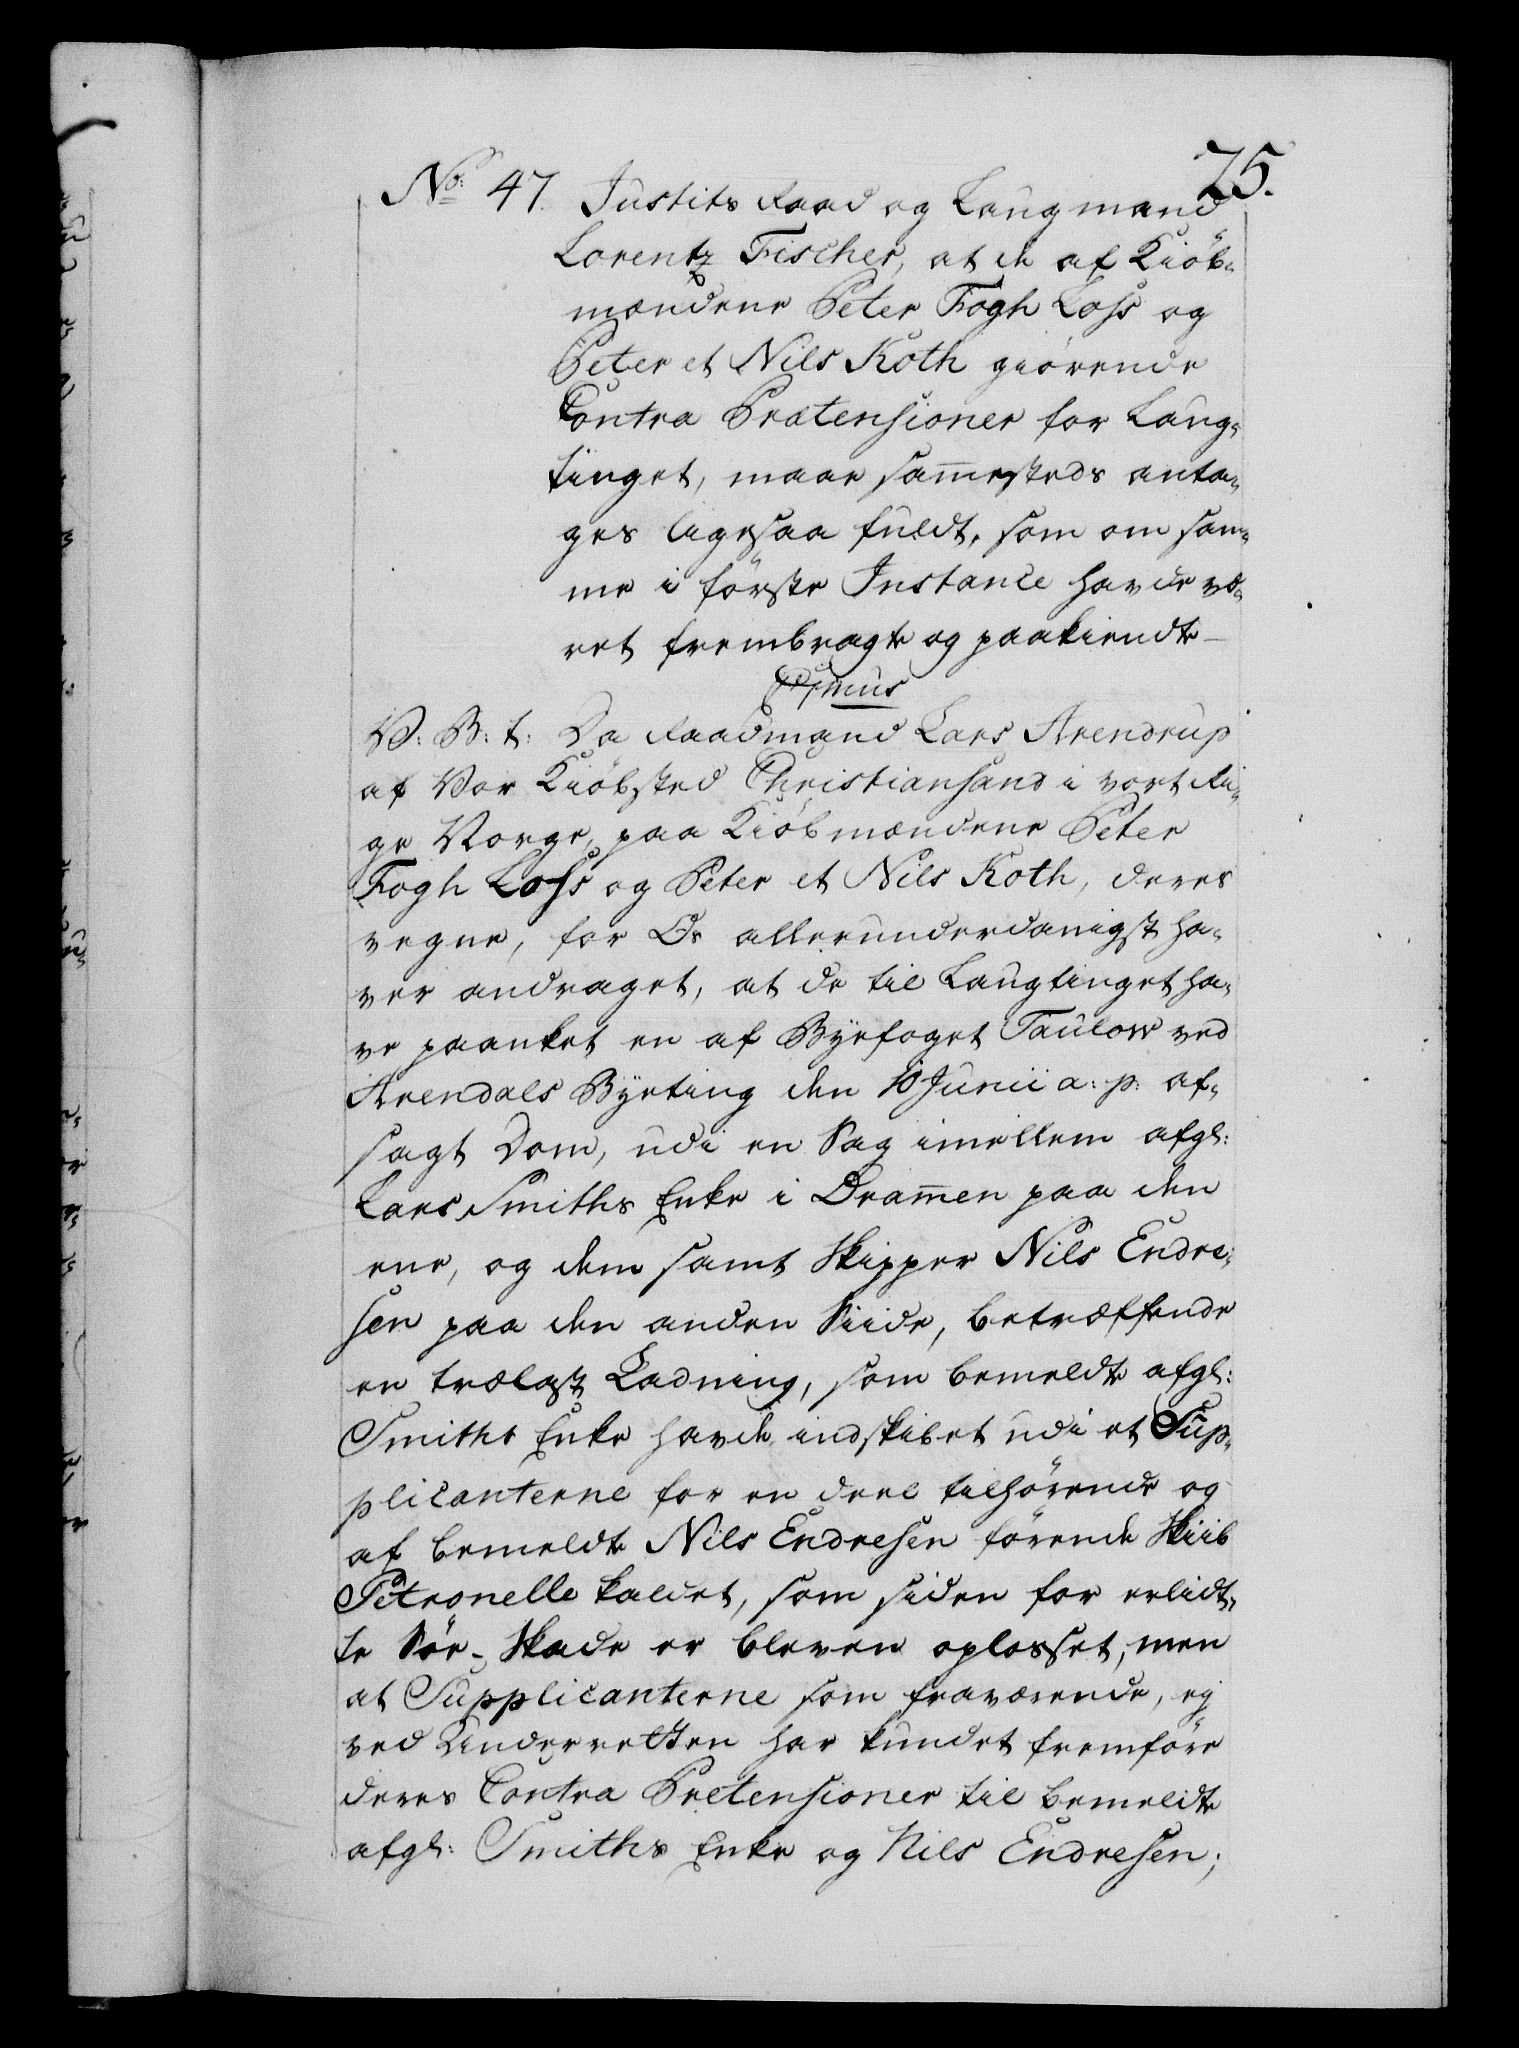 25.
No: 47. Justits Raad og Laugmand
Lorentz Fischer, at de af Kiöb-
mændene Peter Fogh Loss og
Peter et Nils Koth giörende
Contra Prætensioner for Laug-
tinget, maae sammesteds anta-
ges ligesaa fuldt, som om sam-
me i förste Instance havde væ-
ret frembragte og paakiendte
V: G: t: Da Raadmand Lars Arendrup
af Vor Kiöbsted Christiansand i vort Ri-
ge Norge, paa Kiöbmændene Peter
Fogh Loss og Peter et Nils Koth, deres
vegne, for Os allerunderdanigst ha-
ver andraget, at de til Laugtinget ha-
ve paanket en af Byefoget Taulow ved
Arendals Byeting den 10 Junii a: p: af-
sagt Dom, udi en Sag imellem afgl:
Lars Smiths Enke i Drammen paa den
ene, og dem samt Skipper Nils Endre-
sen paa den anden Siide, betræffende
en trælast Ladning, som bemeldte afgl:
Smiths Enke havde indskibet udi et Sup-
plicanterne for en deel tilhörende og
af bemeldte Nils Endresen förende Skiib
Petronelle kaldet, som siden for erlidt-
te Söe-Skade er bleven oplosset, men
at Supplicanterne som fraværende, ej
ved Underretten har kundet fremföre
deres Contra Pretensioner til bemeldte
afgl: Smiths Enke og Nils Endresen;